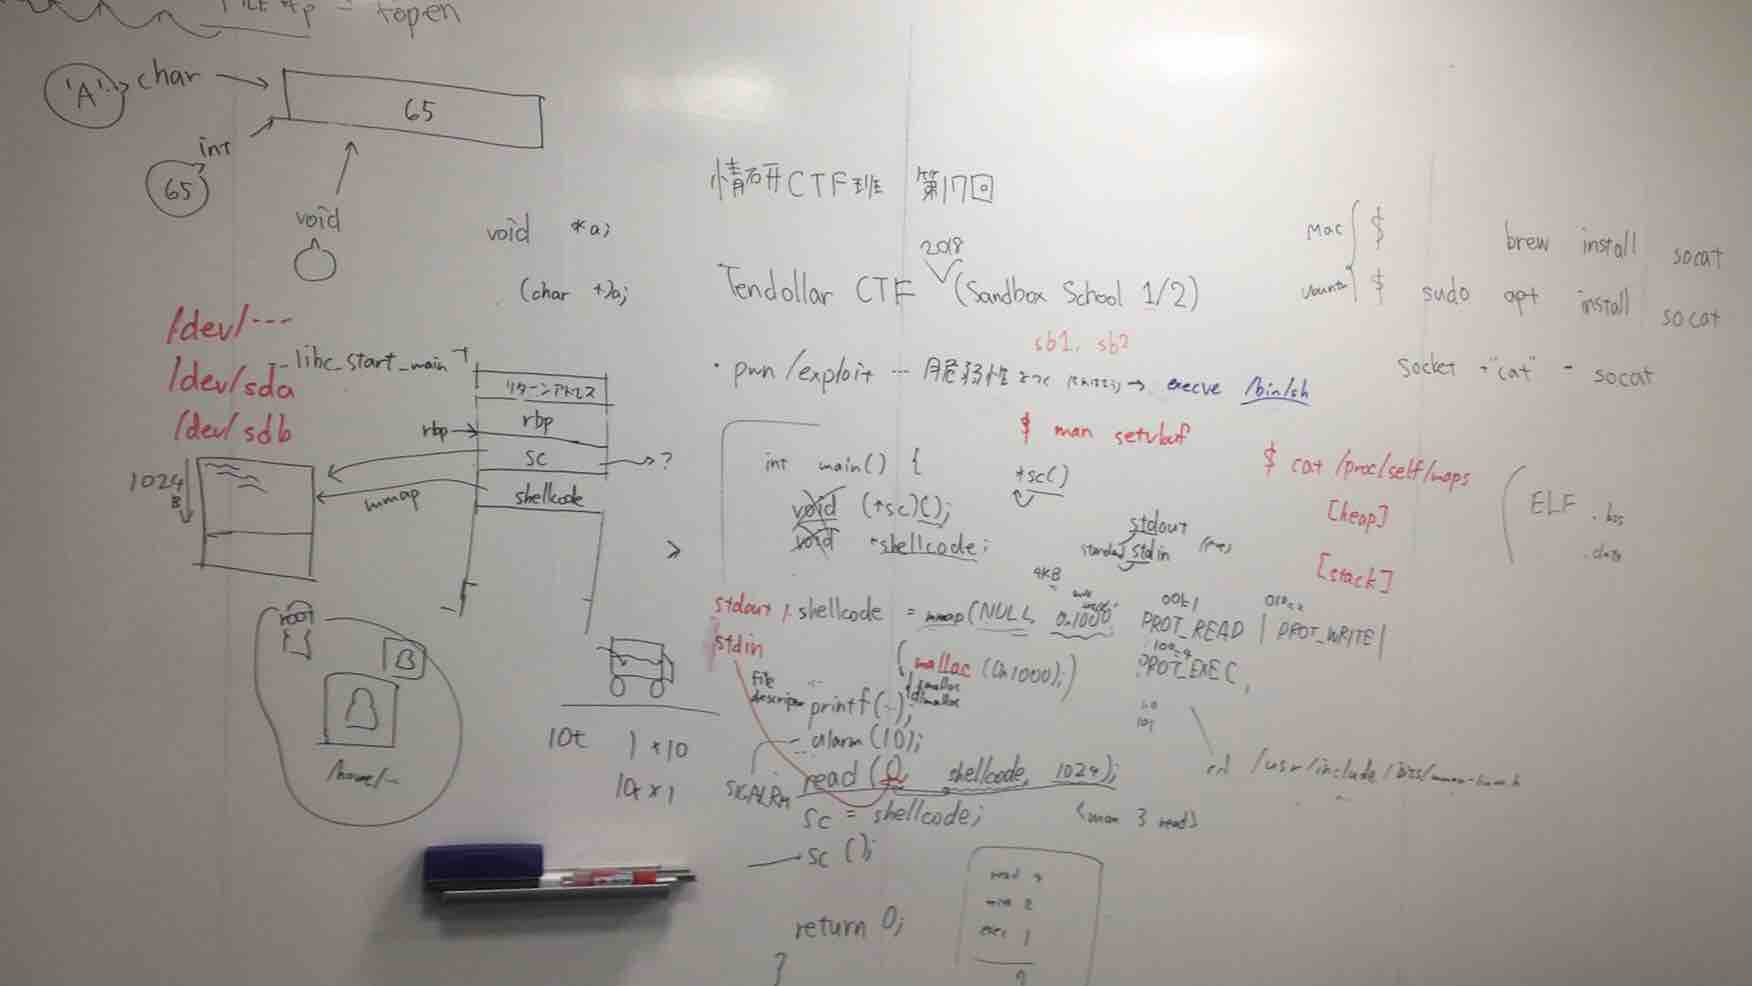 fopen
'A' char
65
int
65
void
void *a;
(char *)a;
/dev/---
/dev/sda
/dev/sdb
libc_start_main
リターンアドレス
rbp
rbp
sc
?
shellcode
mmap
1024
B
root
B
/home/--
10t 1 * 10
10t * 1
情研CTF班 第17回
2018
Tendollar CTF (Sandbox School 1/2)
sb1, sb2
・pwn/exploit … 脆弱性 → execve /bin/sh
$ man setvbuf
int main() {
*sc()
void (*sc)();
void *shellcode;
stdout
standard stdin
>
4KB
001=1
010=2
stdout 1 shellcode = mmap(NULL, 0x1000, PROT_READ | PROT_WRITE |
stdin
100=4
PROT_EXEC,
(malloc(0x1000);)
file
printf(-);
alarm(10);
SIGALRM
read(0, shellcode, 1024);
sc = shellcode;
(man 3 read)
sc();
return 0;
}
read 4
exec 1
Mac $ brew install socat
Ubuntu $ sudo apt install socat
socket + "cat" = socat
$ cat /proc/self/maps
[heap]
[stack]
ELF .bss
.data
/usr/include/bits/